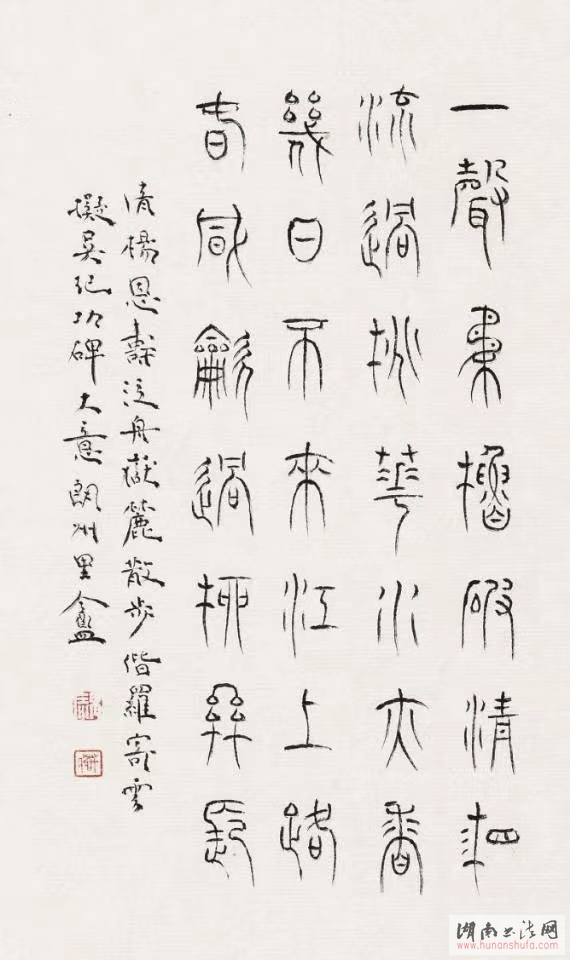 一聲柔櫓破清湘
流過桃華水亦香
幾日不來江上路
春風龡過柳絲長
清楊恩壽泛舟嶽麓散步偕羅寄雲
擬吳紀功碑大意朗州里盦
湖南书法网
www.hunanshufa.com